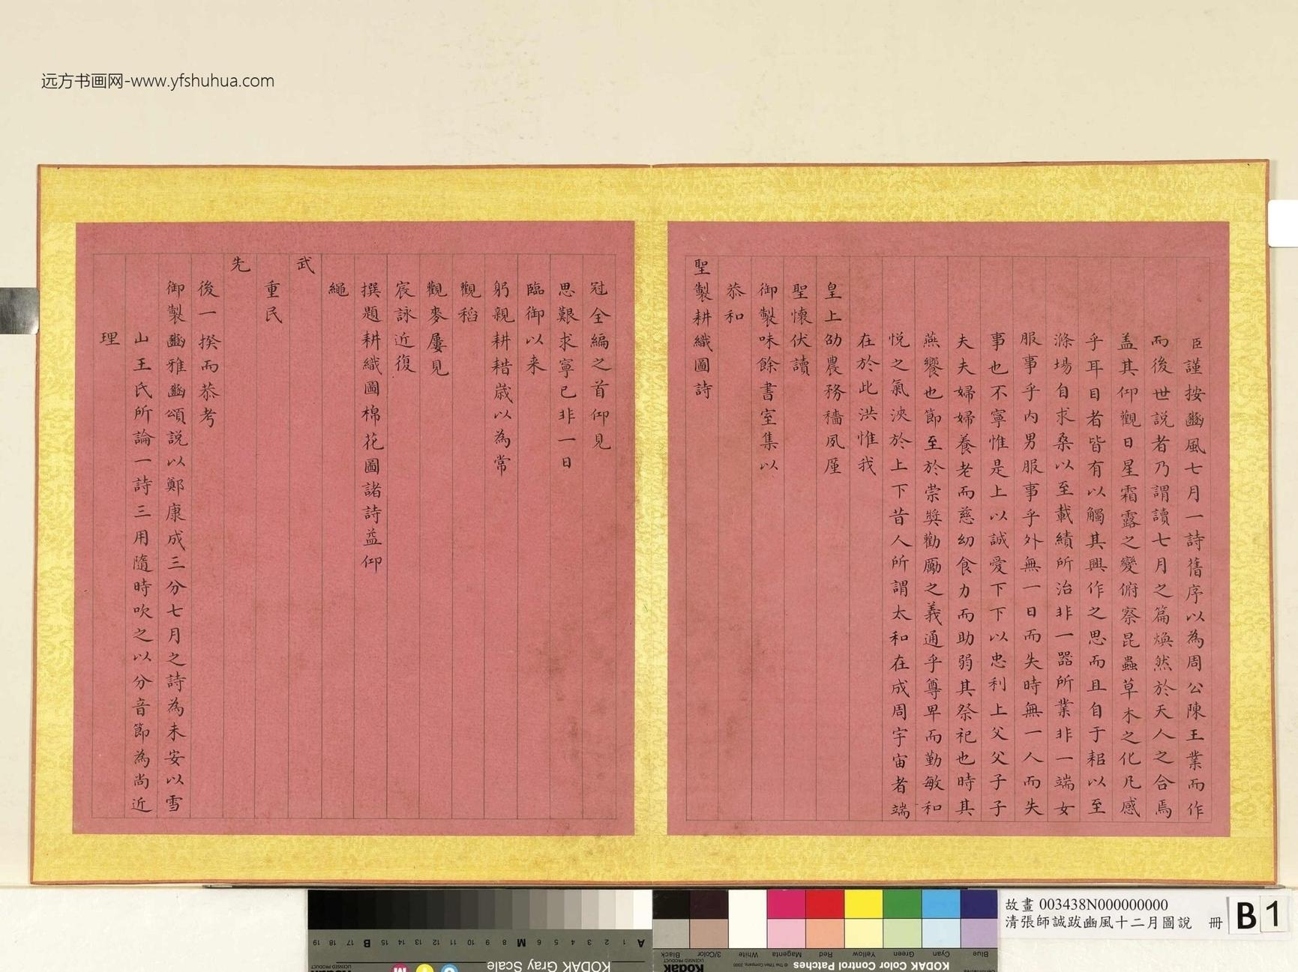 远方书画网-www.yfshuhua.com
臣謹按豳風七月一詩舊序以為周公陳王業而作
而後世説者乃謂讀七月之篇煥然於天人之合焉
盖其仰觀日星霜露之變俯察昆蟲草木之化凡感
乎耳目者皆有以觸其興作之思而且自于耜以至
滌場自求桑以至載績所治非一器所業非一端女
服事乎内男服事乎外無一日而失時無一人而失
事也不寧惟是上以誠愛下下以忠利上父父子子
夫夫婦婦養老而慈幼食力而助弱其祭祀也時其
燕饗也節至於崇奬勸勵之義通乎尊卑而勤敏和
悦之氣浹於上下昔人所謂太和在成周宇宙者端
在於此洪惟我
皇上劭農務穡夙廑
聖懷伏讀
御製味餘書室集以
恭和
聖製耕織圖詩
冠全編之首仰見
思艱求寧已非一日
臨御以来
躬親耕耤嵗以為常
觀稻
觀麥屢見
宸詠近復
撰題耕織圖棉花圖諸詩益仰
繩
武
重民
先
後一揆而恭考
御製豳雅豳頌説以鄭康成三分七月之詩為未安以雪
山王氏所論一詩三用隨時吹之以分音節為尚近
理
故畫 003438N000000000
清張師誠跋豳風十二月圖説 冊
B 1
KODAK Gray Scale
A 1 2 3 4 5 6 M 8 9 10 11 12 13 14 15 B 17 18 19
KODAK Color Control Patches
Blue Cyan Green Yellow Red Magenta White 3/Color Black
Kodak
C Y M